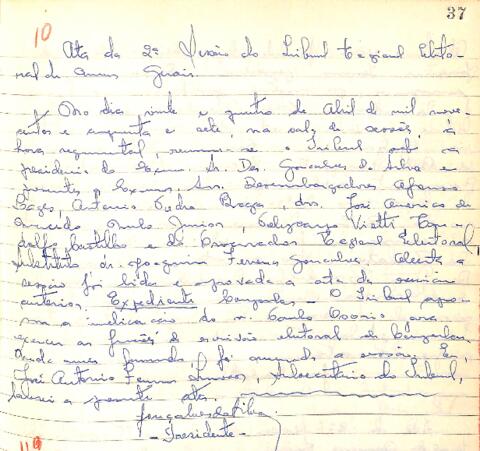 37
10
Ata da 2ª Sessão do Tribunal Regional Eleito-
ral de Minas Gerais.
No dia vinte e quatro de Abril de mil nove-
centos e cinquenta e sete, na sala de sessões, à
hora regimental, reuniu-se o Tribunal sob a
presidencia do Exmo. Sr. Des. Gonçalves da Silva e
presentes os Exmos. Srs. Desembargadores Afonso
Lages, Antonio Pedro Braga, drs. José Americo de
Macedo, Junior, Vietti
e do Procurador Regional Eleitoral,
substituto dr. Joaquim Ferreira Gonçalves. Aberta a
sessão foi lida e aprovada a ata da reunião
anterior. Expediente O Tribunal apro-
vou a indicação do sr. Paulo Osorio para
exercer as funções de escrivão eleitoral de
Nada mais havendo, foi encerrada a sessão. Eu,
José Antonio, subsecretário do Tribunal,
lavrei a presente ata.
Gonçalves da Silva
- Presidente -
11